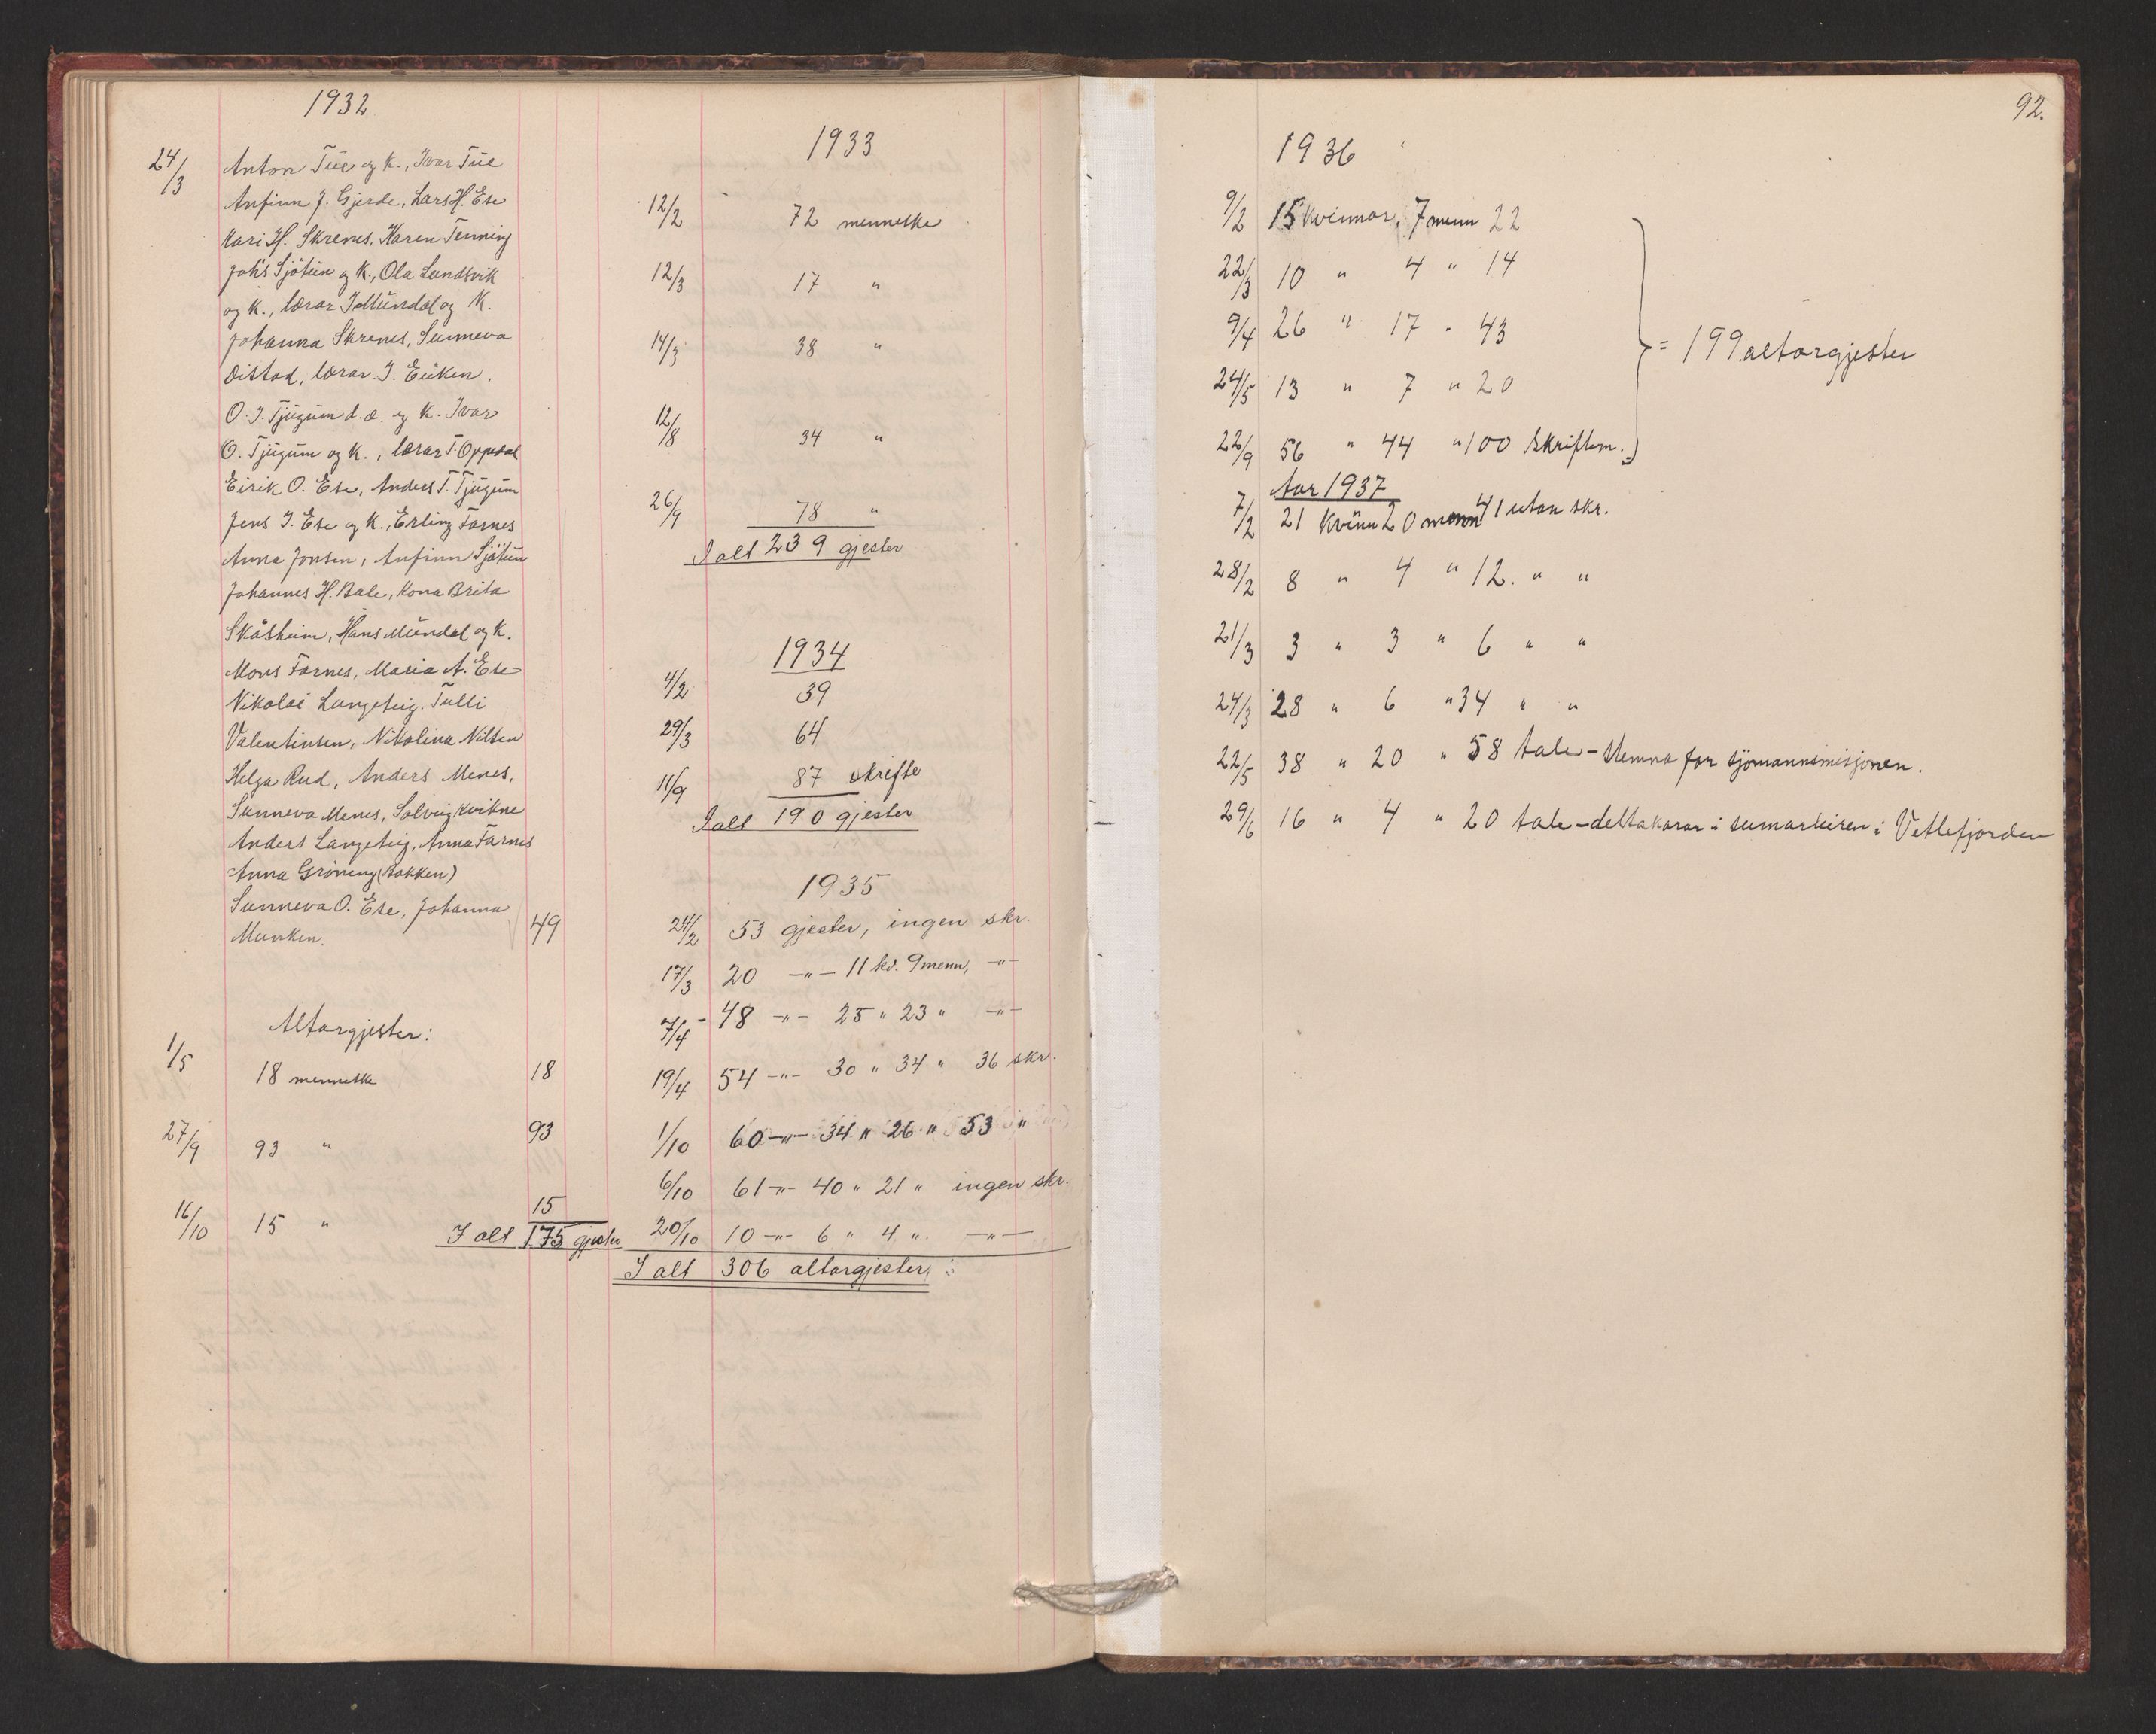 1932
24/3 Anton Tue og K., Ivar Tue
Anfinn J. Gjerde, Lars H. Ese
Kari H. Skrenes, Karen Tenning
Joh's Sjøtun og K., Ola Lundsvik
og K., lærar I Mundal og K.
Johanna Skrenes, Sunneva
Distad, lærar I. Eiken.
O. I. Tjugum d.e. og K. Ivar
O. Tjugum og K., lærar T. Oppedal
Eirik O. Ese, Anders T. Tjugum
Jens I. Ese og K., Erling Farnes
Anna Jonsen, Anfinn Sjøtun
Johannes H. Bale, Kona Brita
Skåsheim, Hans Mundal og K.
Mons Farnes, Maria A. Ese
Nikolai Langeteig. Tulli
Valentinsen, Nikolina Nilsen
Helga Rud, Anders Menes,
Sunneva Menes, Solveig Kvikne
Anders Langeteig, Anna Farnes
Anna Grøneng (Bakken)
Sunneva O. Ese, Johanna
Munken. 49
Altargjester:
1/5 18 menneske 18
27/9 93 " 93
16/10 15 " 15
I alt 175 gjester
1933
12/2 72 menneske
12/3 17 "
14/3 38 "
12/8 34 "
26/9 78 "
I alt 239 gjester
1934
4/2 39
29/3 64
11/9 87 skrifte
I alt 190 gjester
1935
24/2 53 gjester, ingen skr.
17/3 20 -"- 11 kv. 9 menn, -"-
7/4 48 -"- 25 " 23 " -"-
19/4 54 -"- 30 " 34 " 36 skr.
1/10 60 -"- 34 " 26 " 53 "
6/10 61 -"- 40 " 21 " ingen skr.
20/10 10 -"- 6 " 4 " -"-
I alt 306 altargjester
92.
1936
9/2 15 Kvinnor, 7 menn 22
22/3 10 " 4 " 14
9/4 26 " 17 " 43
= 199 altargjester
24/5 13 " 7 " 20
22/9 56 " 44 " 100 skriftem.
Aar 1937
7/2 21 Kvinn 20 menn 41 utan skr.
28/2 8 " 4 " 12. " "
21/3 3 " 3 " 6 " "
24/3 28 " 6 " 34 " "
22/5 38 " 20 " 58 tale - Stemna for sjømannsmisjonen.
29/6 16 " 4 " 20 tale - deltakarar i sumarleiren i Vetlefjorden